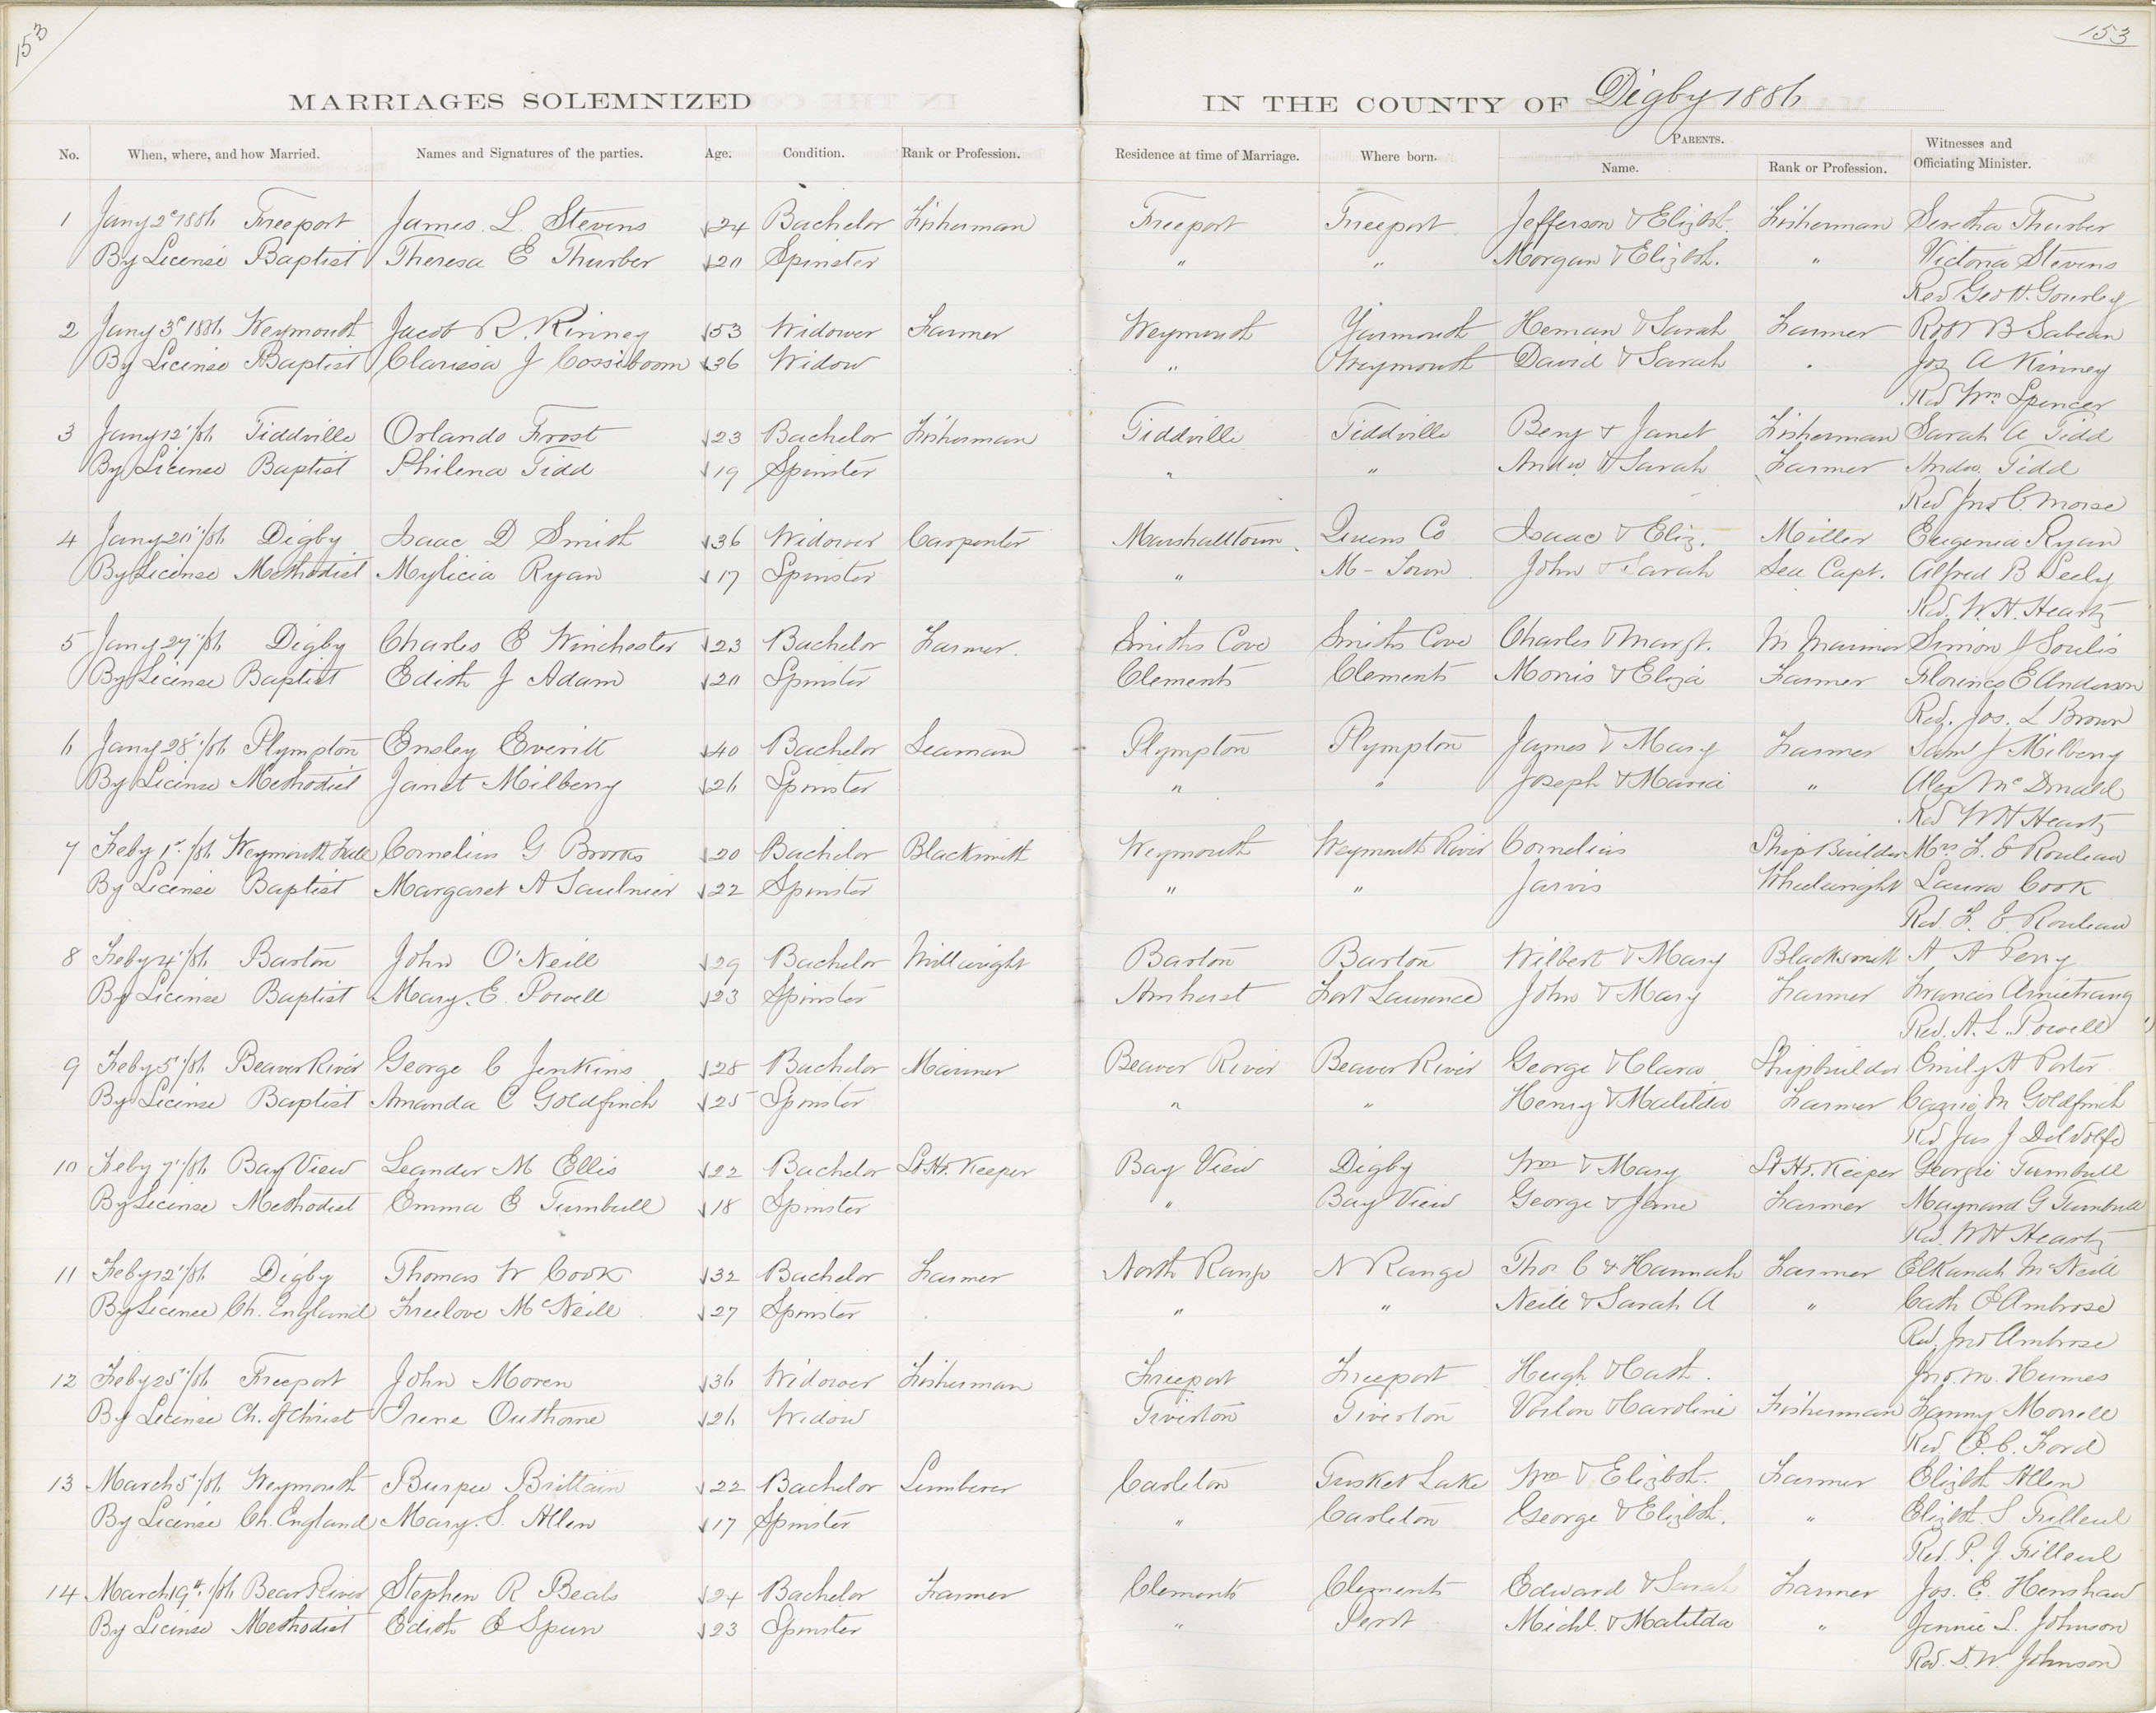 153
153
MARRIAGES SOLEMNIZED IN THE COUNTY OF Digby 1886
No. When, where, and how Married. Names and Signatures of the parties. Age. Condition. Rank or Profession. Residence at time of Marriage. Where born. PARENTS. Name. Rank or Profession. Witnesses and Officiating Minister.
1 Jany 2d 1886 Freeport James L Stevens 24 Bachelor Fisherman Freeport Freeport Jefferson & Elizbth. Fisherman Seretha Thurber
By License Baptist Theresa E Thurber 20 Spinster " " Morgan & Elizbth. " Victoria Stevens
Rev Geo H. Gourley
2 Jany 3d 1886 Weymouth Jacob R. Kinney 53 Widower Farmer Weymouth Yarmouth Heman & Sarah Farmer Robt B Sabean
By License Baptist Clarissa J Cossiboom 36 Widow " Weymouth David & Sarah " Jos A Kinney
Rev Wm Spencer
3 Jany 12"/86 Tiddville Orlando Frost 23 Bachelor Fisherman Tiddville Tiddville Benj & Janet Fisherman Sarah A Tidd
By License Baptist Philena Tidd 19 Spinster " " Andw & Sarah Farmer Andw. Tidd
Rev Jno C. Morse
4 Jany 20"/86 Digby Isaac D Smith 36 Widower Carpenter Marshalltown Queens Co Isaac & Eliz. Miller Eugenia Ryan
By License Methodist Mylicia Ryan 17 Spinster " M-Town John & Sarah Sea Capt. Alfred B Seely
Rev. W. H. Heartz
5 Jany 27"/86 Digby Charles E Winchester 23 Bachelor Farmer Smiths Cove Smiths Cove Charles & Margt. M Mariner Simon J Soulis
By License Baptist Edith J Adam 20 Spinster Clements Clements Morris & Eliza Farmer Florence E Anderson
Rev. Jos. L Brown
6 Jany 28"/86 Plympton Ensley Everitt 40 Bachelor Seaman Plympton Plympton James & Mary Farmer Saml J Milberry
By License Methodist Janet Milberry 26 Spinster " " Joseph & Maria " Alex McDonald
Rev W H Heartz
7 Feby 1st/86 Weymouth Cornelius G Brooks 20 Bachelor Blacksmith Weymouth Weymouth River Cornelius Ship Builder Mrs F. E Rouleau
By License Baptist Margaret A Saulnier 22 Spinster " " Jarvis Wheelwright Laura Cook
Rev. F. E. Rouleau
8 Feby 4"/86 Barton John O'Neill 29 Bachelor Millwright Barton Barton Wilbert & Mary Blacksmith A A Perry
By License Baptist Mary. E. Powell 23 Spinster Amherst Fort Laurence John & Mary Farmer Francis Armstrong
Rev. A. L. Powell
9 Feby 5"/86 Beaver River George C Jenkins 28 Bachelor Mariner Beaver River Beaver River George & Clara Shipbuilder Emily A Porter
By License Baptist Amanda C Goldfinch 25 Spinster " " Henry & Matilda Farmer Carrie M Goldfinch
Rev Jas J DeWolfe
10 Feby 7"/86 Bay View Leander M Ellis 22 Bachelor Lt Hs. Keeper Bay View Digby Wm & Mary Lt Hs. Keeper Georgie Turnbull
By License Methodist Emma E Turnbull 18 Spinster " Bay View George & Jane Farmer Maynard G Turnbull
Rev. W H Heartz
11 Feby 12"/86 Digby Thomas W Cook 32 Bachelor Farmer North Range N Range Thos C & Hannah Farmer Elkanah McNeill
By License Ch. England Freelove McNeill 27 Spinster " " Neill & Sarah A " Cath E Ambrose
Rev. Jno Ambrose
12 Feby 25"/86 Freeport John Moren 36 Widower Fisherman Freeport Freeport Hugh & Cath. Jno. M. Humes
By License Ch. of Christ Irene Outhouse 26 Widow Tiverton Tiverton & Caroline Fisherman Fanny Morrell
Rev. E. C. Ford
13 March 5"/86 Weymouth Burpee Brittain 22 Bachelor Lumberer Carleton Tusket Lake Wm & Elizbth. Farmer Elizbth Allen
By License Ch. England Mary. S. Allen 17 Spinster " Carleton George & Elizbth. " Elizbth. S Filleul
Rev. P. J. Filleul
14 March 19th/86 Bear River Stephen R Beals 24 Bachelor Farmer Clements Clements Edward & Sarah Farmer Jos. E. Henshaw
By License Methodist Edith E Spurr 23 Spinster " Michl. & Matilda " Jennie L. Johnson
Rev. D. W. Johnson